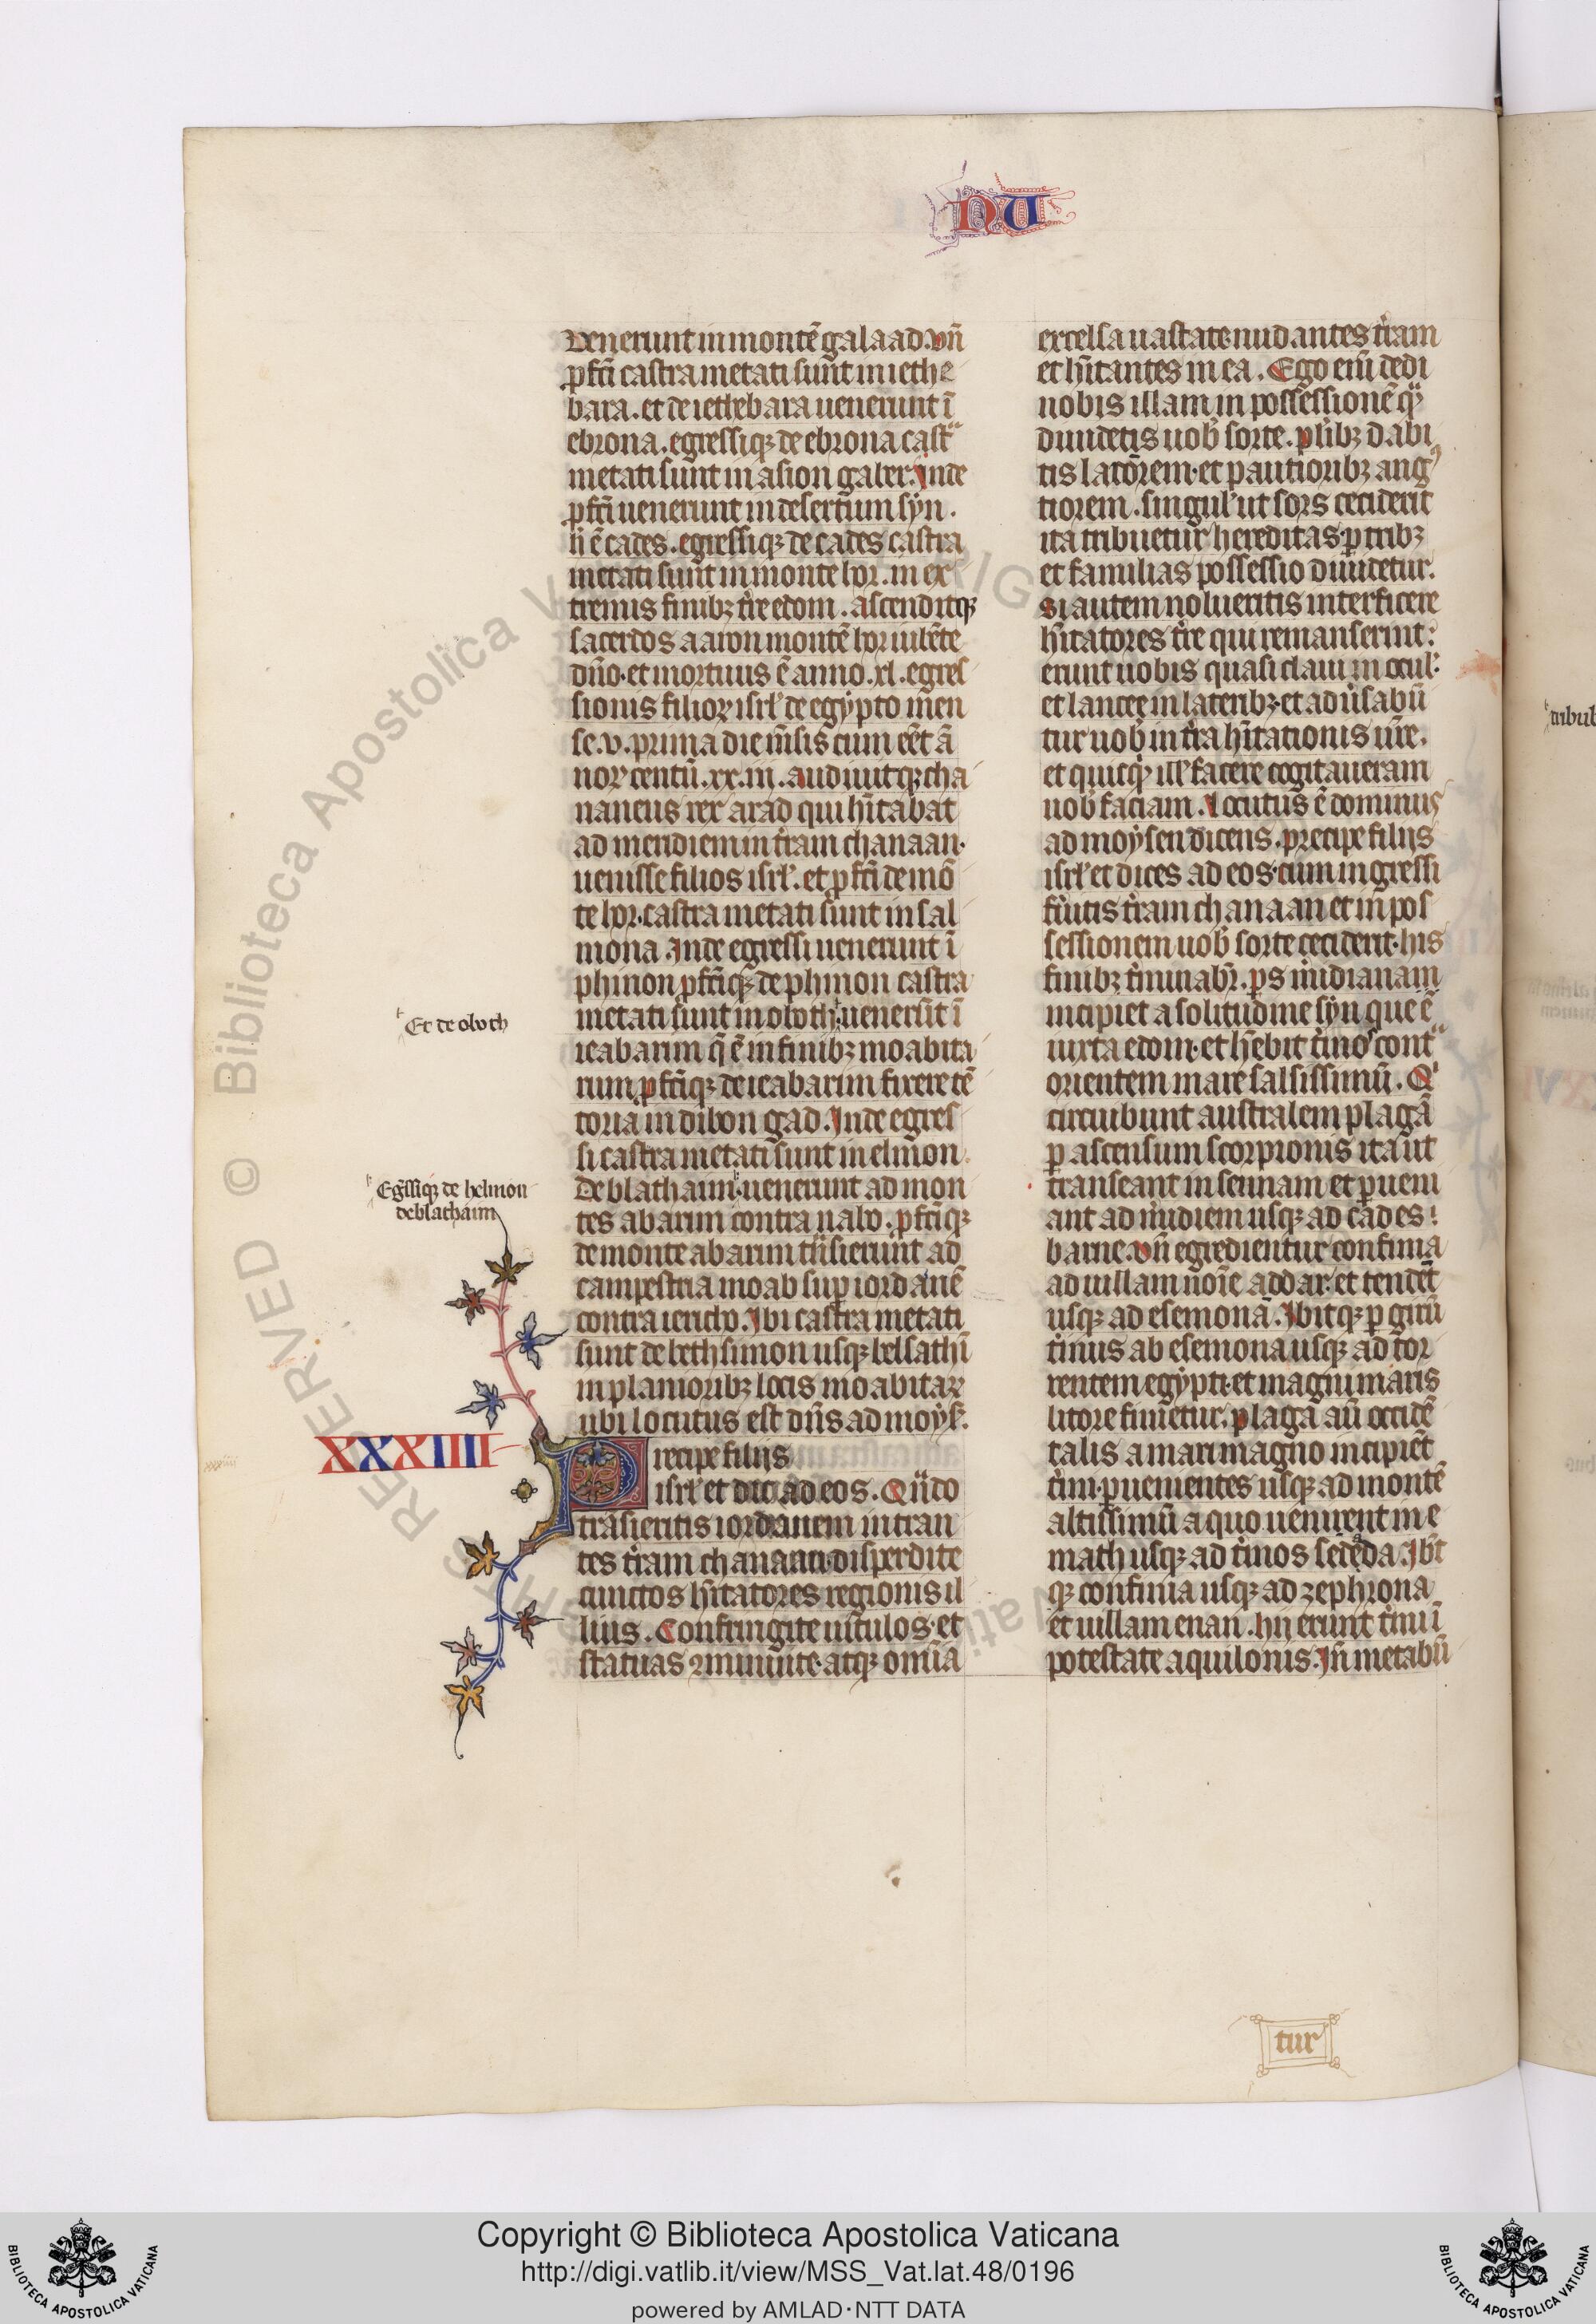 NU
venerunt in montē galaad. vn̄
ꝓfcī castra metati sunt in iethe
bara. et de iethebara uenerunt ī
ebrona. egressiqꝫ de ebrona cast
metati sunt in asion gaber. Inde
ꝓfcī uenerunt in desertum syn.
h̄ ē cades. egressiqꝫ de cades castra
metati sunt in monte hor. in ex
tremis finibꝫ t̄re edom. ascenditqꝫ
sacerdos aaron montē hor iubēte
dn̄o. et mortuus ē anno .xl. egres
sionis filioꝝ isrl̓ de egypto men
se .v. prima die m̄sis cum eēt ā
noꝝ centū .xx.iii. audiuitqꝫ cha
naneus rex arad qui hītabat
ad meridiem in t̄ram chanaan.
uenisse filios isrl̓. et ꝓfcī de mō
te hor. castra metati sunt in sal
mona. Inde egressi uenerunt ī
phinon ꝓfcīqꝫ de phinon castra
metati sunt in oboth. uenerūt ī
Et de oboth
ieabarim q̄ ē in finibꝫ moabita
rum ꝓfcīqꝫ de ieabarim fixere tē
toria in dibon gad. Inde egres
si castra metati sunt in elmon.
Deblathaim. uenerunt ad mon
Egs̄siqꝫ de helmon
deblathaim
tes abarim contra nabo. ꝓfcīqꝫ
de monte abarim trāsierunt ad
campestria moab suꝑ iordanē
contra iericho. Ibi castra metati
sunt de bethsimon usqꝫ belsathī
in planioribꝫ locis moabitaꝝ
ubi locutus est dn̄s ad moys̄.
XXXIIII
Precipe filiis
isrl̓ et dic ad eos. Qn̄do
trāsieritis iordanem intran
tes t̄ram chanaan. disperdite
cunctos hītatores regionis il
lius. Confringite tıtulos. et
statuas ꝯminuite. atqꝫ om̄ia
excelsa uastate mundantes t̄ram
et hītantes in ea. Ego enī dedi
uobis illam in possessionē qͣ
diuidetis uob̄ sorte. pl̄ibꝫ dabi
tis latōrem. et paucioribꝫ angꝰ
tiorem. singul̓ ut sors ceciderit
ita tribuetur hereditas. ꝑ tribꝫ
et familias possessio diuidetur.
Si autem nolueritis interficere
hītatores t̄re qui remanserint.
erunt uobis quasi claui in ocul̓.
et lancee in lateribꝫ. et adūsabū
tur uob̄ in t̄ra hītationis ur̄e.
et quicqͣ ill̓ facere cogitaueram
uob̄ faciam. Locutus ē dominus
ad moysen dicens. precipe filiis
isrl̓ et dices ad eos. cum ingressi
fūitis t̄ram chanaan et in pos
sessionem uob̄ sorte ceciderit. his
finibꝫ t̄minabr̄. ꝑs m̄idianam
incipiet a solitudine syn que ē
iuxta edom. et h̄ebit t̄mīos cont
orientem mare salsissimū. Qͥ
circuibunt australem plagā
ꝑ ascensum scorpionis ita ut
transeant in sennam et ꝑueni
ant ad m̄idiem usqꝫ ad cades
barne. vn̄ egredientur confinia
ad uillam noīe addar. et tendēt
usqꝫ ad esemonā. Ibitqꝫ ꝑ girū
t̄minus ab esemona usqꝫ ad tor
rentem egypti. et magni maris
litore finietur. plaga aū occidē
talis a mari magno incipiet
t̄im ꝑuenientes usqꝫ ad montē
altissimū a quo uenient in e
math usqꝫ ad t̄minos sededa. Ibt̄
qꝫ confinia usqꝫ ad zephrona
et uillam enan. hii erunt t̄mī ī
potestate aquilonis. In̄ metabū
tur
tribul
© Biblioteca Apostolica Vaticana
RIGHTS RESERVED
Copyright © Biblioteca Apostolica Vaticana
http://digi.vatlib.it/view/MSS_Vat.lat.48/0196
powered by AMLAD·NTT DATA
BIBLIOTECA APOSTOLICA VATICANA
BIBLIOTECA APOSTOLICA VATICANA